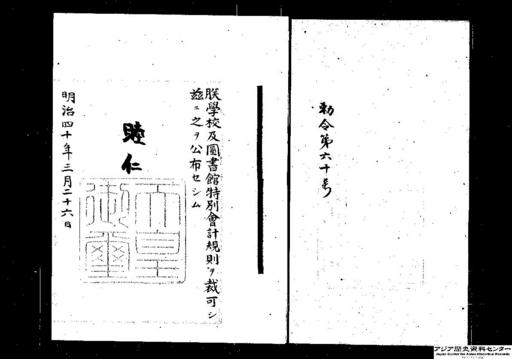 勅令第六十号
朕學校及圖書館特別會計規則ヲ裁可シ
茲ニ之ヲ公布セシム
睦仁
天皇御璽
明治四十年三月二十六日
アジア歴史資料センター
Japan Center for Asian Historical Records